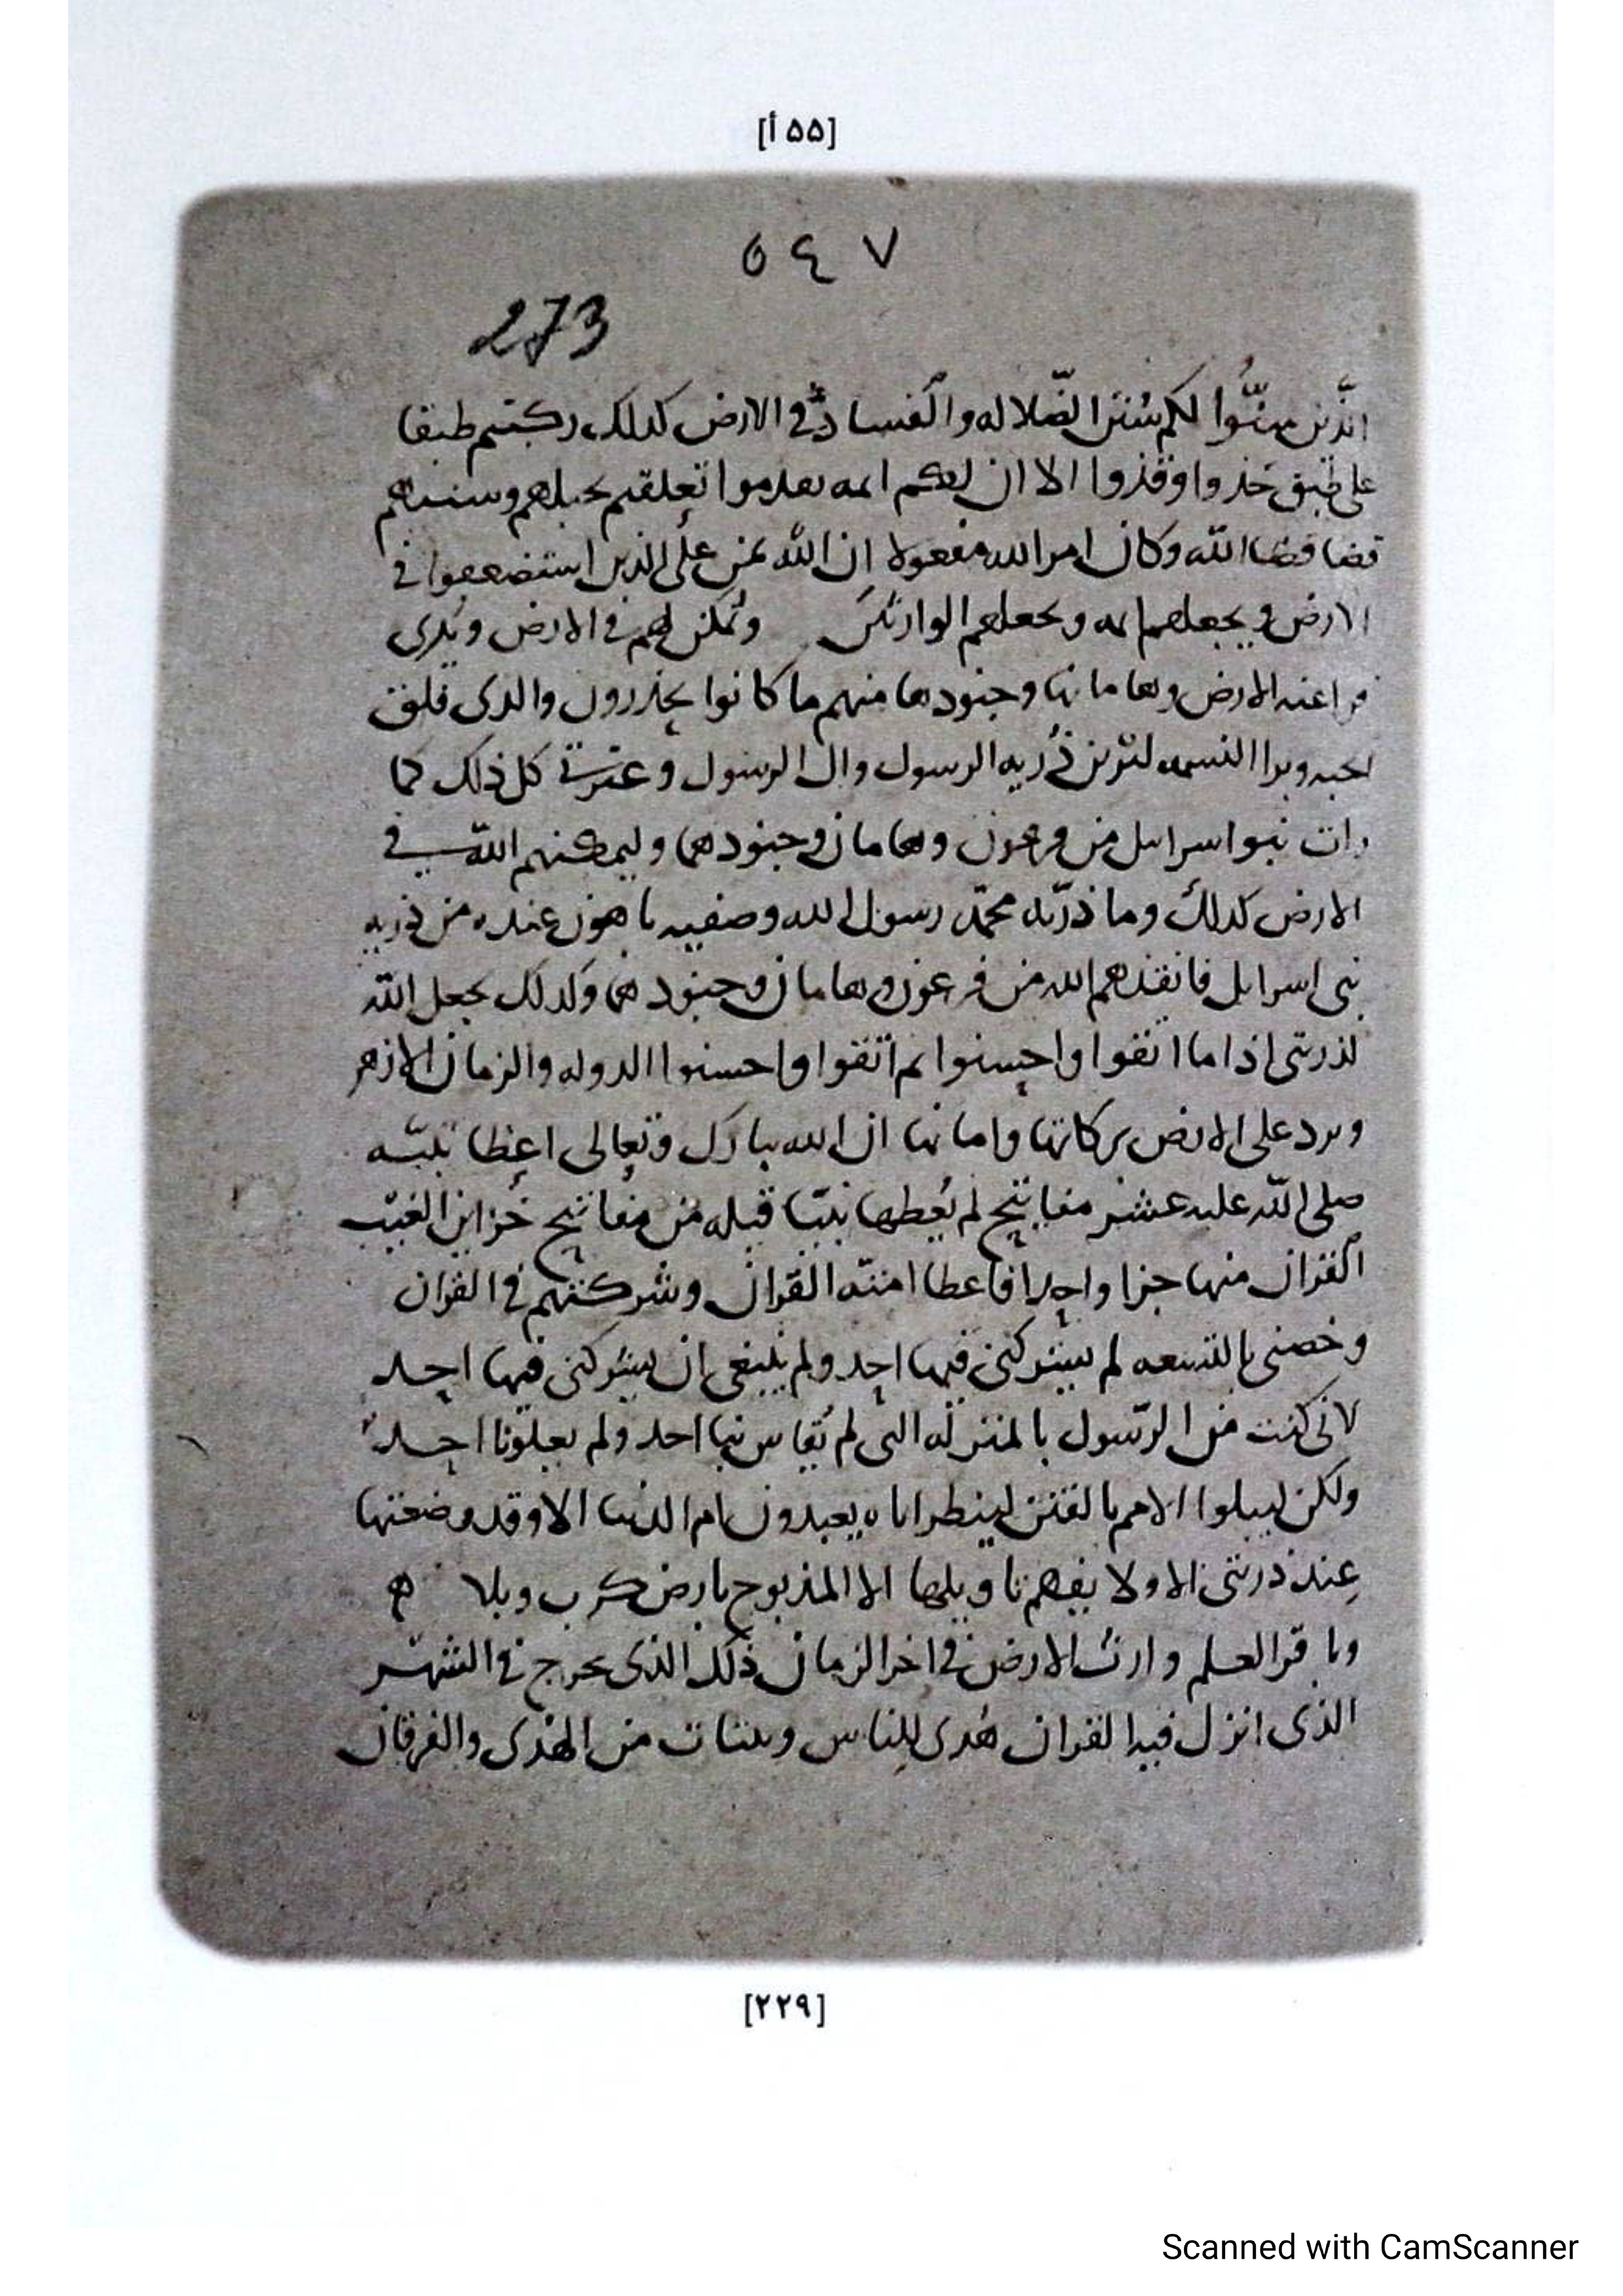 [٥٥ أ]
٥٤٧
273
الذين سنّوا لكم سنن الضلاله والفساد في الارض كذلك ركبتم طبقا
على طبق خذوا وفذوا الا ان لعكم ايمه تقدموا تعلقتم بحبلهم وسننهم
قضا قضا الله وكان امر الله مفعولا ان الله يمن على الذين استضعفوا في
الارض ويجعلهم ايمه ويجعلهم الوارثين ونمكن لهم في الارض ونرى
فراعنه الارض وهاماناتها وجنودها منهم ما كانوا يحذرون والذي فلق
الحبه وبرا النسمه لترين ذريه الرسول وال الرسول وعترتي كل ذلك كما
رات بنوا اسرايل من فرعون وهامان وجنودهما وليمكنهم الله في
الارض كذلك وما ذريه محمد رسول الله وصفيه باهون عنده من ذريه
بني اسرايل فانقذهم الله من فرعون وهامان وجنودهما وكذلك يجعل الله
لذريتي اذا ما اتقوا واحسنوا ثم اتقوا واحسنوا الدوله والزمان الازهر
وبرد على الارض بركاتها واماناتها ان الله تبارك وتعالى اعطا نبيه
صلى الله عليه عشر مفاتيح لم يعطها نبيا قبله من مفاتيح خزاين الغيب
القران منها جزا واحدا فاعطا امته القران وشركتهم في القران
وخصني بالتسعه لم يشركني فيها احد ولم ينبغي ان يشركني فيها احد
لاني كنت من الرسول بالمنزله التي لم تقاس بها احد ولم يعلونا احد
ولكن ليبلوا الامم بالفتن لينظر اياه يعبدون ام الدنيا الا وقد وضعتها
عند ذريتي الا ولا يفهم تاويلها الا المذبوح بارض كرب وبلا
وباقر العلم وارث الارض في اخر الزمان ذلك الذي يخرج في الشهر
الذي انزل فيه القران هدى للناس وبينات من الهدى والفرقان
[٢٢٩]
Scanned with CamScanner